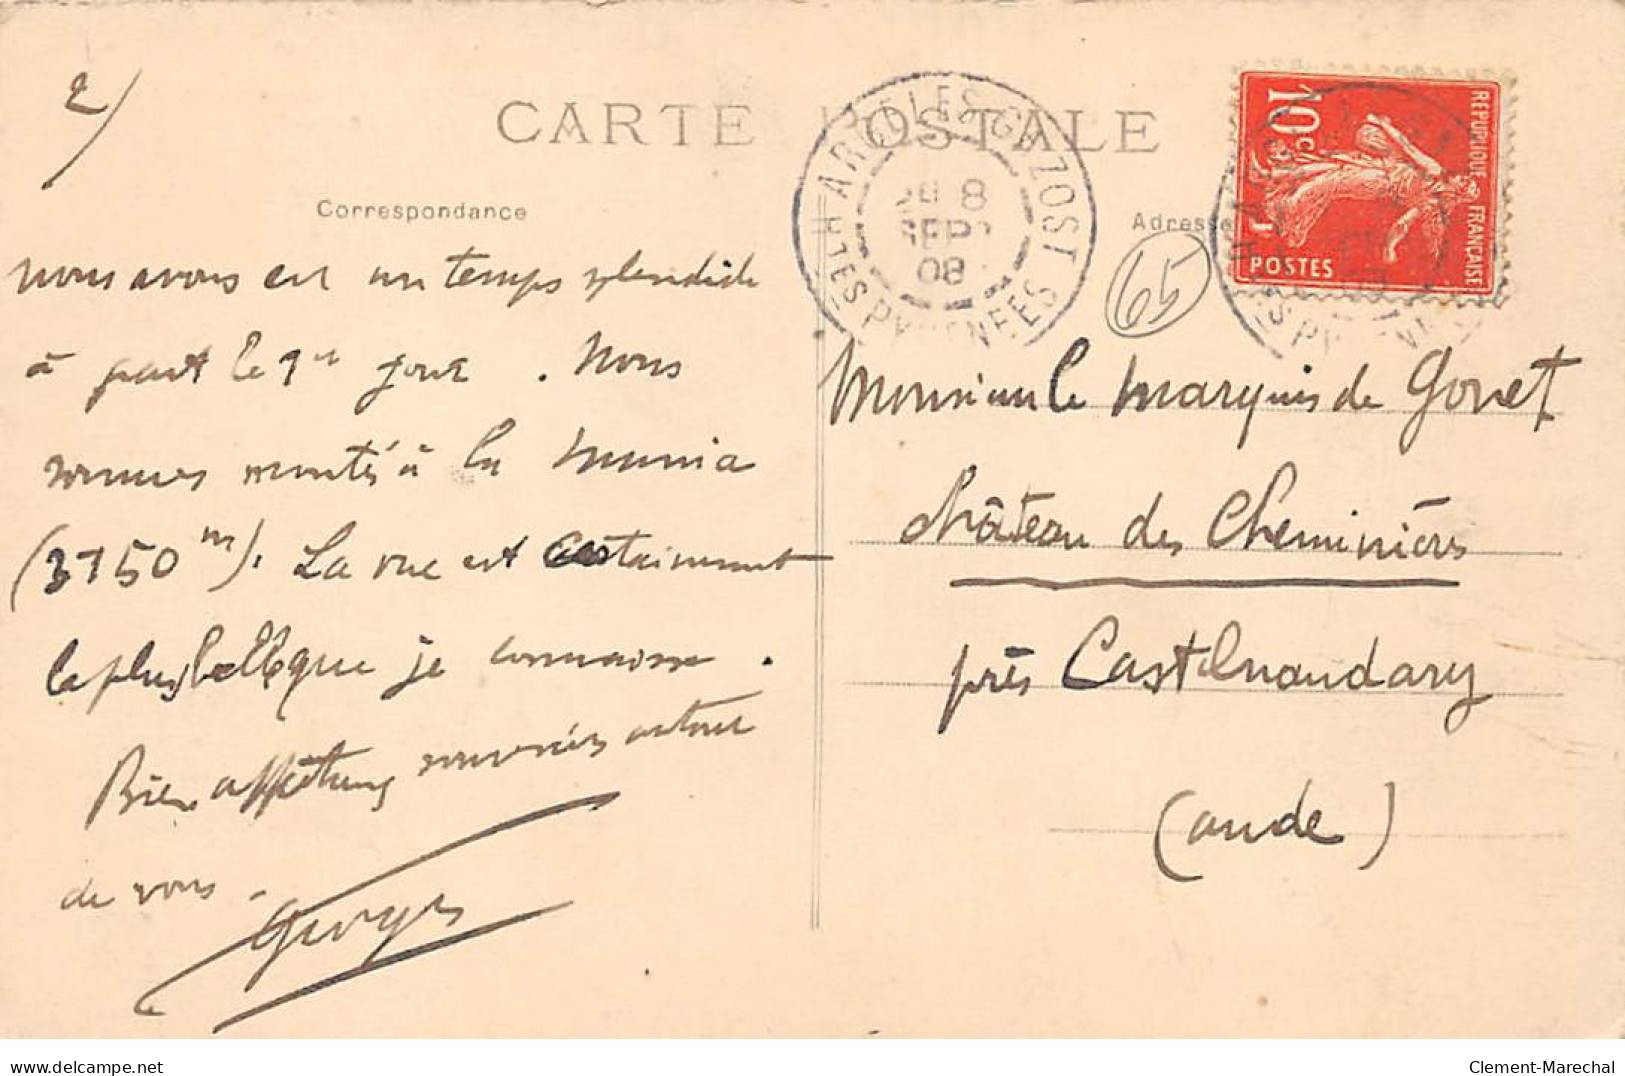 2/
CARTE POSTALE
Correspondance
Adresse
ARGELÈS-GAZOST
8
SEPT
08
HTES PYRENEES
10c
REPUBLIQUE FRANCAISE
POSTES
65
nous avons eu un temps splendide
à part le 1er jour. Nous
sommes montés à la Munia
(3150m). La vue est certainement
la plus belle que je connaisse.
Bien affectueux souvenirs autour
de vous.
Georges
Monsieur le Marquis de Gonet
Château des Cheminières
près Castelnaudary
(aude)
Clement-Marechal